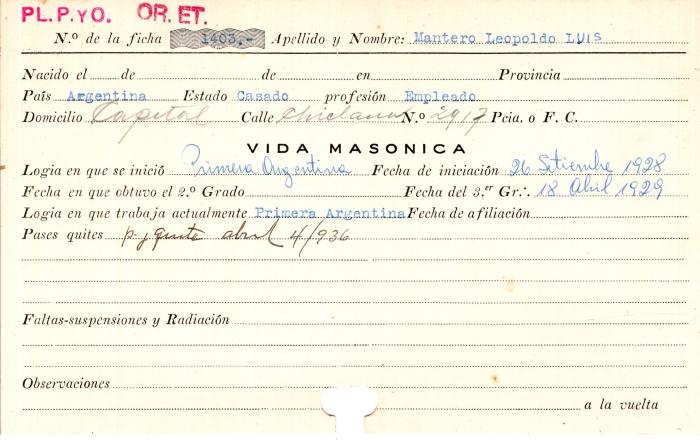 PL. P. yO. OR. ET.
N.º de la ficha 1403,- Apellido y Nombre: Mantero Leopoldo LUIS
Nacido el de de en Provincia
País Argentina Estado Casado profesión Empleado
Domicilio Capital Calle Chiclana N.º 2917 Pcia. o F. C.
VIDA MASONICA
Logia en que se inició Primera Argentina Fecha de iniciación 26 Setiembre 1928
Fecha en que obtuvo el 2.º Grado Fecha del 3.er Gr∴ 18 Abril 1929
Logia en que trabaja actualmente Primera Argentina Fecha de afiliación
Pases quites p. y quite abril 4/936
Faltas-suspensiones y Radiación
Observaciones
a la vuelta